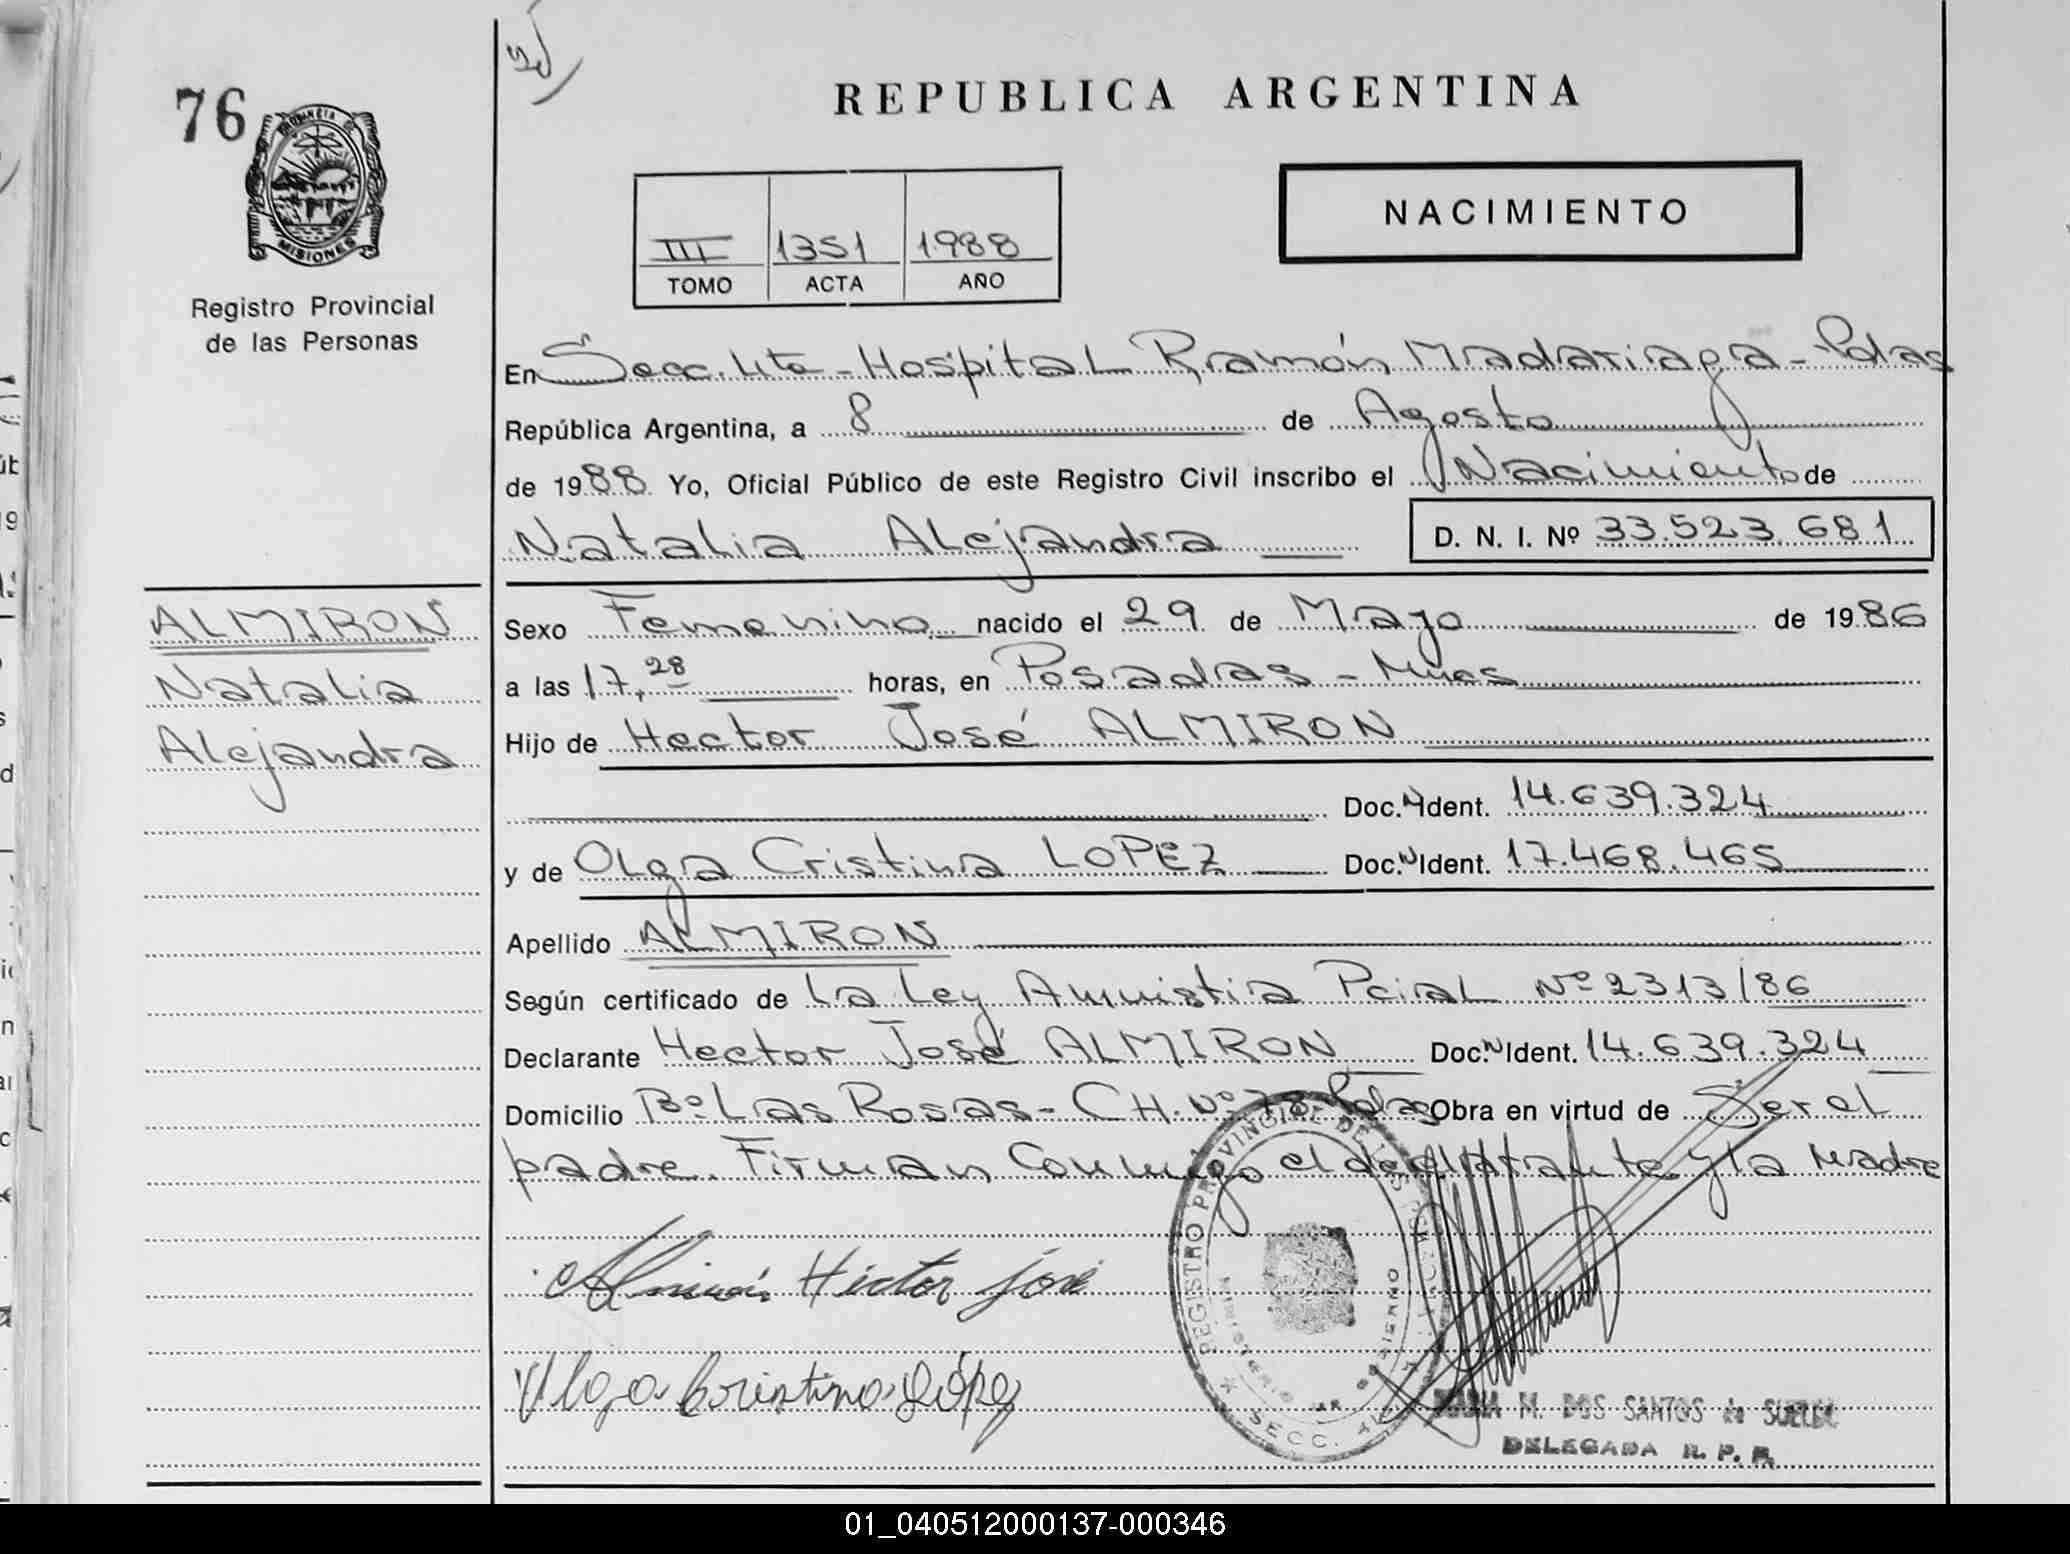 76
REPUBLICA ARGENTINA
PROVINCIA DE
MISIONES
Registro Provincial
de las Personas
III 1351 1988
TOMO ACTA AÑO
NACIMIENTO
En Secc. 4ta - Hospital Ramón Madariaga - Pdas
República Argentina, a 8 de Agosto
de 1988 Yo, Oficial Público de este Registro Civil inscribo el Nacimiento de
Natalia Alejandra
D. N. I. Nº 33.523.681
ALMIRON
Natalia
Alejandra
Sexo Femenino nacido el 29 de Mayo de 1986
a las 17,28 horas, en Posadas - Mnes
Hijo de Hector José ALMIRON
Doc. N Ident. 14.639.324
y de Olga Cristina LOPEZ Doc. N Ident. 17.468.465
Apellido ALMIRON
Según certificado de La Ley Amnistia Pcial Nº 2313/86
Declarante Hector José ALMIRON Doc. N Ident. 14.639.324
Domicilio Bº Las Rosas - CH. Nº 78 Pdas Obra en virtud de Ser el
padre. Firman Conmigo el declarante y la Madre
Almirón Hector José
Olga Cristina López
REGISTRO PROVINCIAL DE LAS PERSONAS
MINISTERIO DE GOBIERNO
SECC. 4
MARIA M. DOS SANTOS de
DELEGADA R. P. P.
01_040512000137-000346